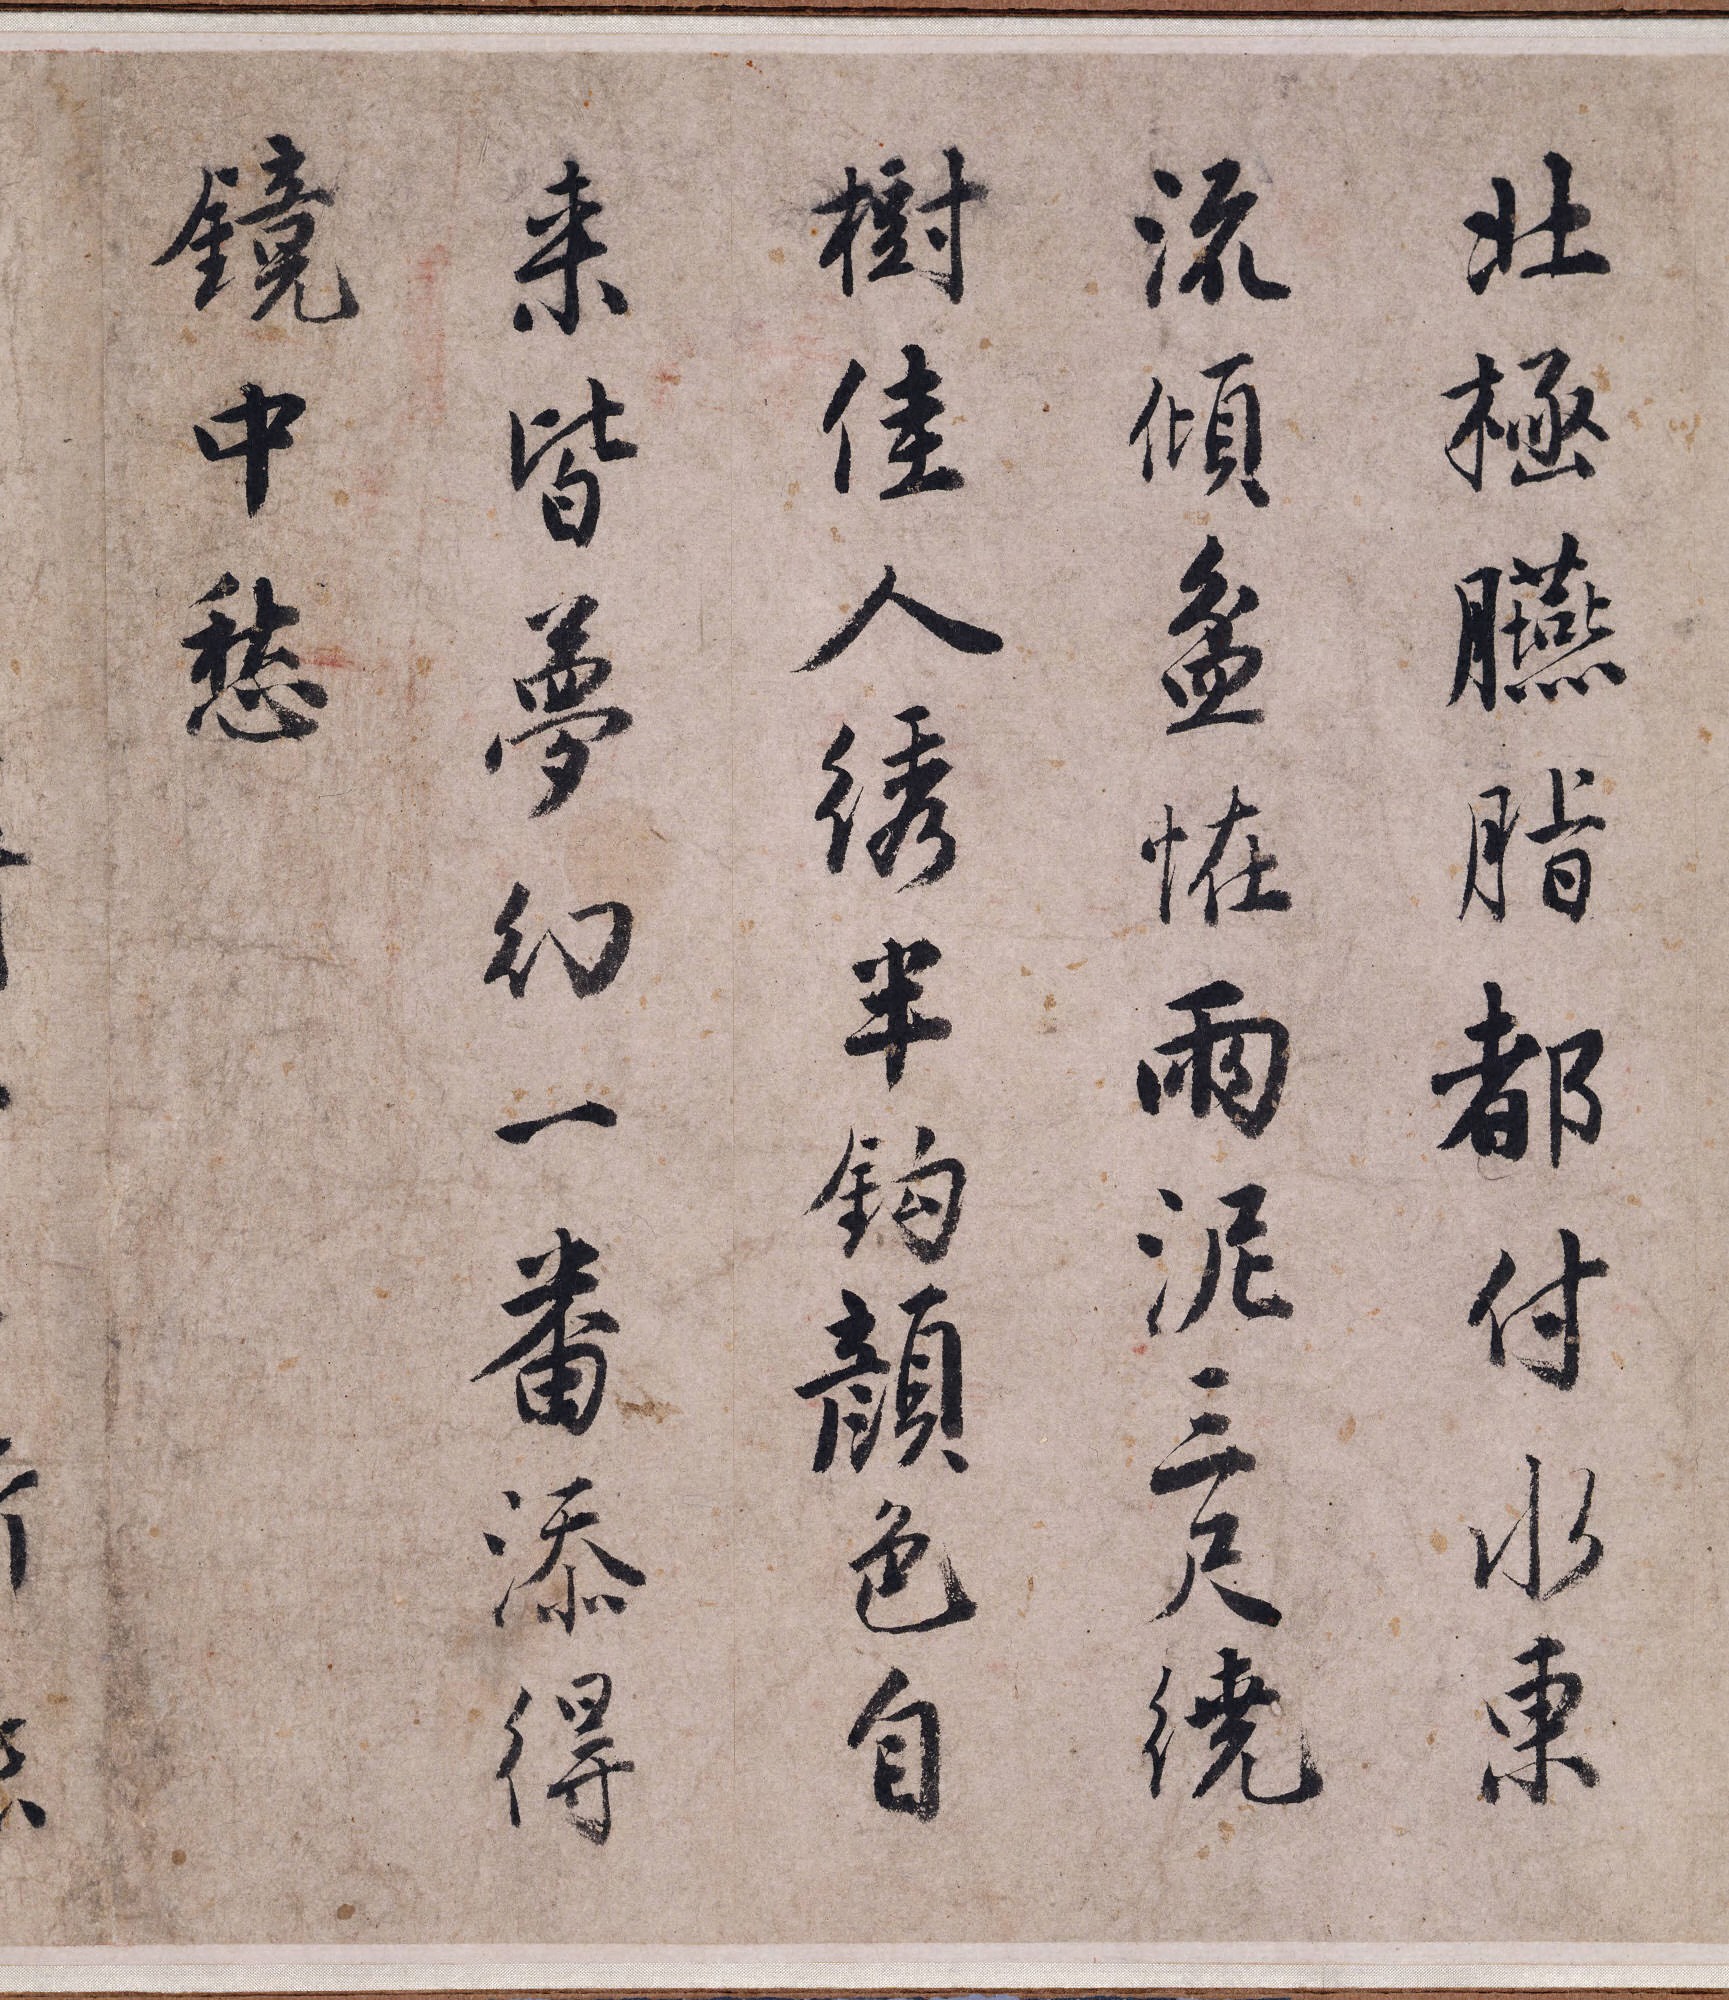 北極臙脂都付水東
流傾盆怪雨泥三尺繞
樹佳人綉半鈎顏色自
来皆夢幻一番添得
鏡中愁